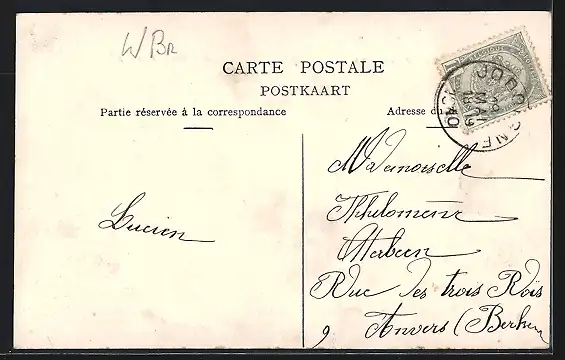 W Br
CARTE POSTALE
POSTKAART
Partie réservée à la correspondance
Adresse du
JODOIGNE
Mademoiselle
Philomène
Lucien
Rue des trois Rois
9 Anvers (Berchem